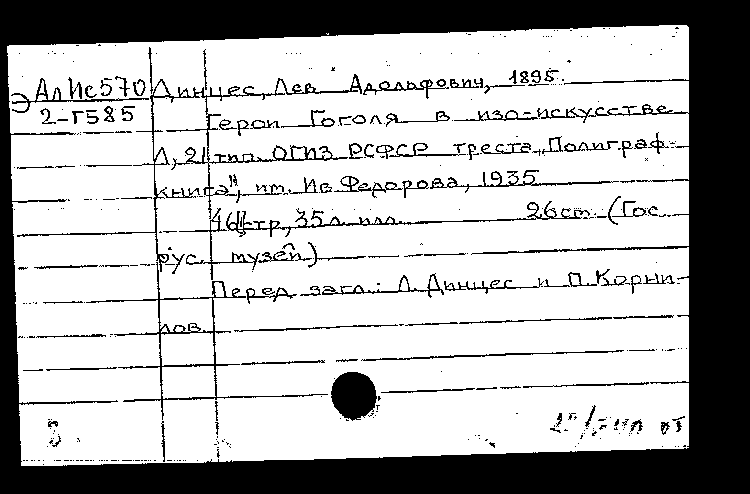 Э АлИс570 Динцес, Лев Адольфович, 1895.
2-Г585 Герои Гоголя в изо-искусстве
Л, 21 тип. ОГИЗ РСФСР треста „Полиграф-
книга", им. Ив. Федорова, 1935
46 стр., 35 л. илл. 26 cm (Гос.
рус. музей)
Перед загл.: Л. Динцес и П. Корни-
лов.